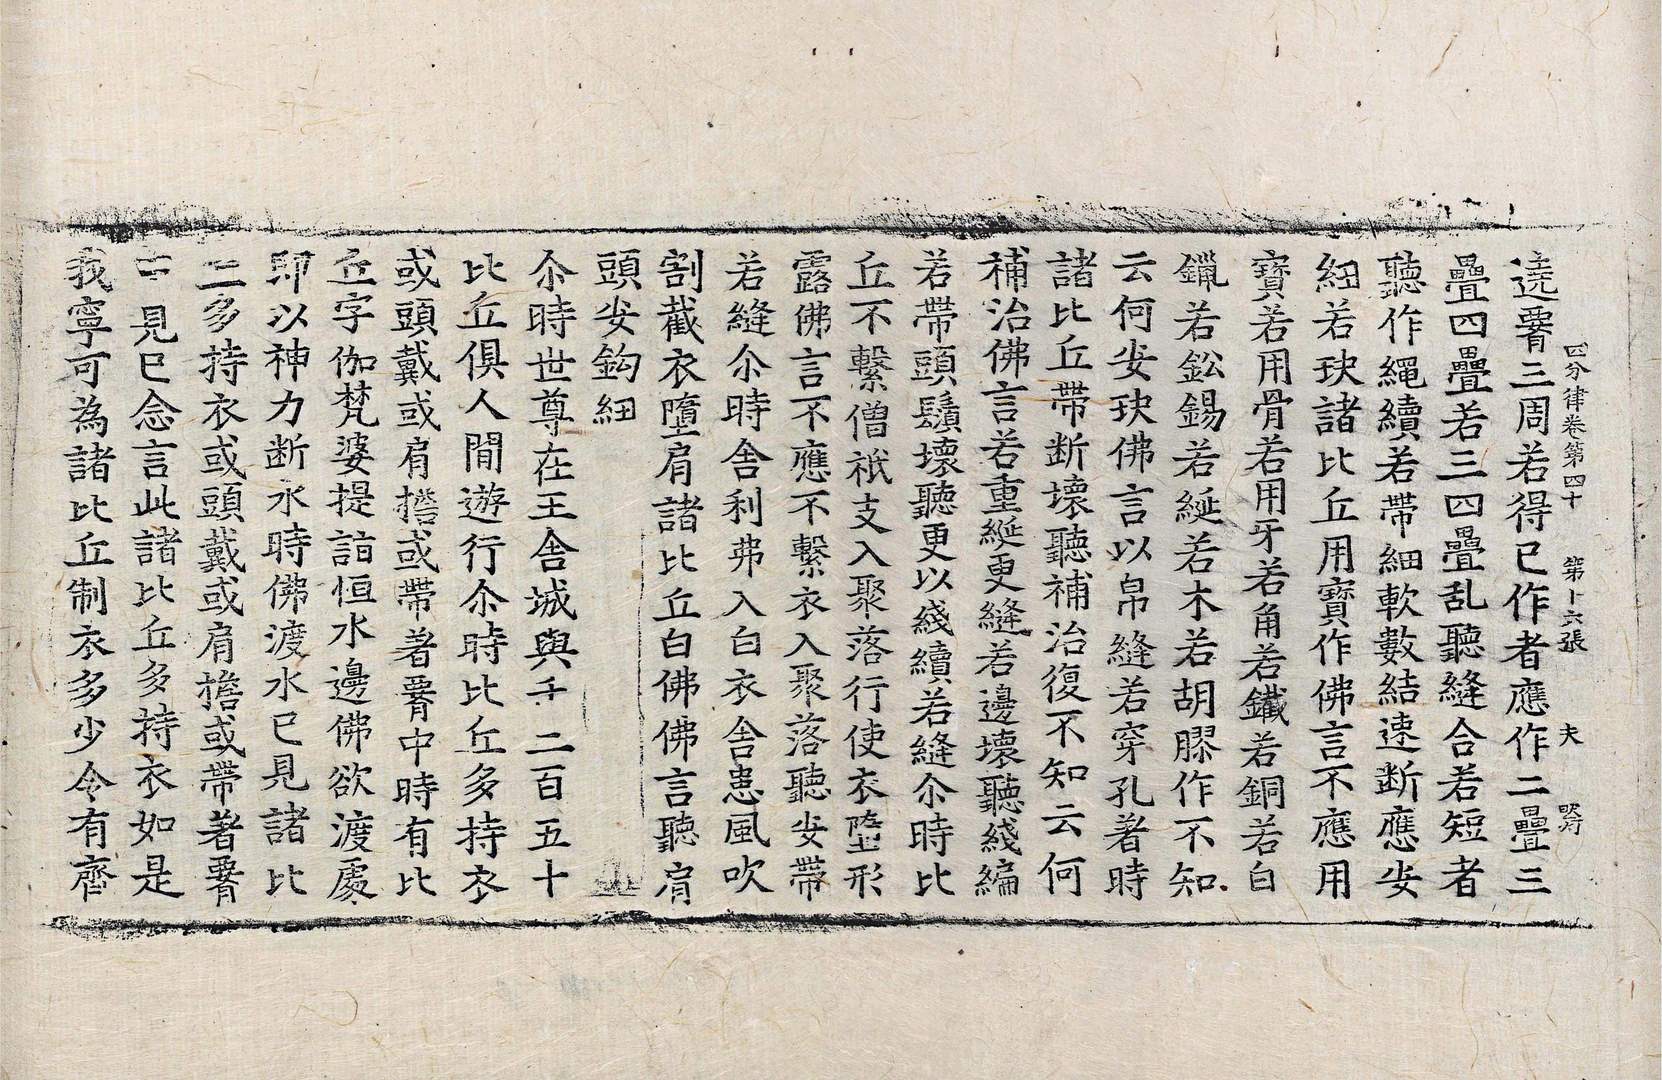 四分律卷第四十 第十六張 夫
遶𦝫三周若得已作者應作二疊三
疊四疊若三四疊乱聽縫合若短者
聽作繩續若帶細軟數結速断應安
紐若玦諸比丘用寶作佛言不應用
寶若用骨若用牙若角若鐵若銅若白
鑞若鈆錫若綖若木若胡膠作不知
云何安玦佛言以帛縫若穿孔著時
諸比丘帶断壞聽補治復不知云何
補治佛言若重綖更縫若邊壞聽綫編
若帶頭鬚壞聽更以綫續若縫尒時比
丘不繫僧祇支入聚落行使衣墮形
露佛言不應不繫衣入聚落聽安帶
若縫尒時舍利弗入白衣舍患風吹
割截衣墮肩諸比丘白佛佛言聽肩
頭安鈎紐
尒時世尊在王舍城與千二百五十
比丘俱人間遊行尒時比丘多持衣
或頭戴或肩擔或帶著𦝫中時有比
丘字伽梵婆提詣恒水邊佛欲渡處
即以神力断水時佛渡水已見諸比
丘多持衣或頭戴或肩擔或帶著𦝫
中見已念言此諸比丘多持衣如是
我寧可為諸比丘制衣多少令有齊